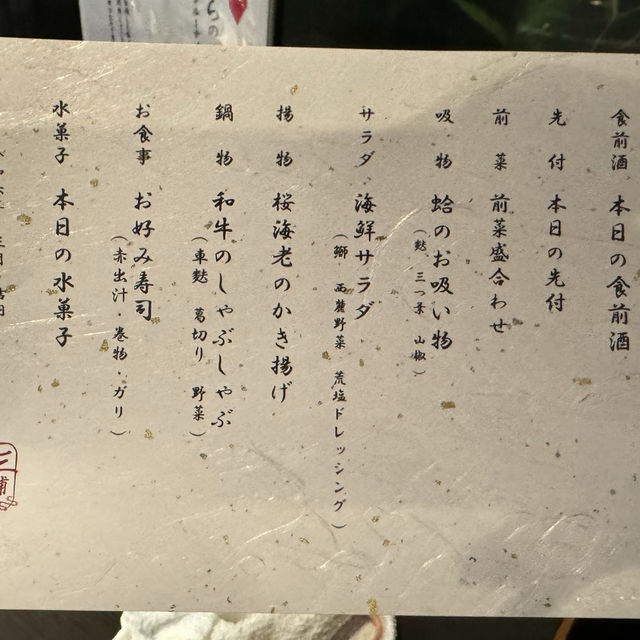 食前酒 本日の食前酒
先付 本日の先付
前菜 前菜盛合わせ
吸物 蛤のお吸い物
（麩 三つ葉 山椒）
サラダ 海鮮サラダ
（鰤 西麓野菜 荒塩ドレッシング）
揚物 桜海老のかき揚げ
鍋物 和牛のしゃぶしゃぶ
（車麩 葛切り 野菜）
お食事 お好み寿司
（赤出汁・巻物・ガリ）
水菓子 本日の水菓子